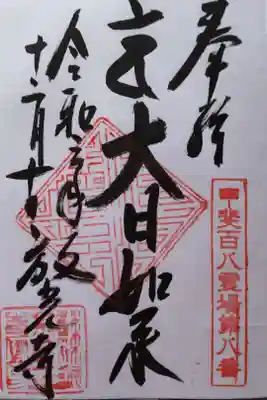 奉拝
甲斐百八霊場第八番
大日如来
令和三年
十二月十日
放光寺